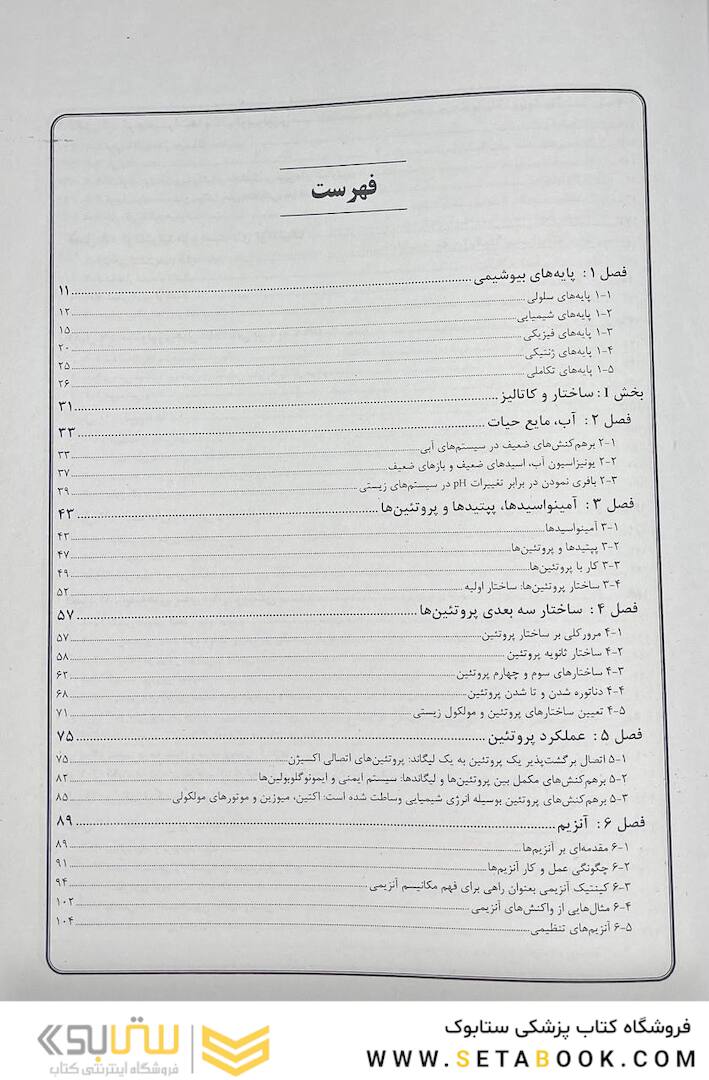 فهرست
فصل ۱: پایه‌های بیوشیمی ........ ۱۱
۱-۱ پایه‌های سلولی ........ ۱۲
۱-۲ پایه‌های شیمیایی ........ ۱۵
۱-۳ پایه‌های فیزیکی ........ ۲۰
۱-۴ پایه‌های ژنتیکی ........ ۲۵
۱-۵ پایه‌های تکاملی ........ ۲۶
بخش I: ساختار و کاتالیز ........ ۳۱
فصل ۲: آب، مایع حیات ........ ۳۳
۲-۱ برهم‌کنش‌های ضعیف در سیستم‌های آبی ........ ۳۳
۲-۲ یونیزاسیون آب، اسیدهای ضعیف و بازهای ضعیف ........ ۳۷
۲-۳ بافری نمودن در برابر تغییرات pH در سیستم‌های زیستی ........ ۳۹
فصل ۳: آمینواسیدها، پپتیدها و پروتئین‌ها ........ ۴۳
۳-۱ آمینواسیدها ........ ۴۳
۳-۲ پپتیدها و پروتئین‌ها ........ ۴۷
۳-۳ کار با پروتئین‌ها ........ ۴۹
۳-۴ ساختار پروتئین‌ها: ساختار اولیه ........ ۵۲
فصل ۴: ساختار سه بعدی پروتئین‌ها ........ ۵۷
۴-۱ مرورکلی بر ساختار پروتئین ........ ۵۷
۴-۲ ساختار ثانویه پروتئین ........ ۵۸
۴-۳ ساختارهای سوم و چهارم پروتئین ........ ۶۲
۴-۴ دناتوره شدن و تا شدن پروتئین ........ ۶۸
۴-۵ تعیین ساختارهای پروتئین و مولکول زیستی ........ ۷۱
فصل ۵: عملکرد پروتئین ........ ۷۵
۵-۱ اتصال برگشت‌پذیر یک پروتئین به یک لیگاند: پروتئین‌های اتصالی اکسیژن ........ ۷۵
۵-۲ برهم‌کنش‌های مکمل بین پروتئین‌ها و لیگاندها: سیستم ایمنی و ایمونوگلوبولین‌ها ........ ۸۲
۵-۳ برهم‌کنش‌های پروتئین بوسیله انرژی شیمیایی وساطت شده است: اکتین، میوزین و موتورهای مولکولی ........ ۸۵
فصل ۶: آنزیم ........ ۸۹
۶-۱ مقدمه‌ای بر آنزیم‌ها ........ ۸۹
۶-۲ چگونگی عمل و کار آنزیم‌ها ........ ۹۱
۶-۳ کینتیک آنزیمی بعنوان راهی برای فهم مکانیسم آنزیمی ........ ۹۴
۶-۴ مثال‌هایی از واکنش‌های آنزیمی ........ ۱۰۲
۶-۵ آنزیم‌های تنظیمی ........ ۱۰۴
فروشگاه کتاب پزشکی ستابوک
WWW.SETABOOK.COM
ستابوک
فروشگاه اینترنتی کتاب